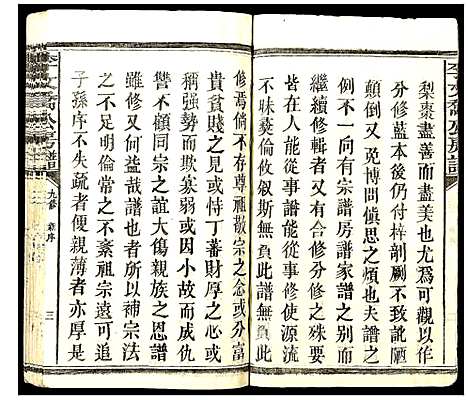 梨棗盡善而盡美也尤爲可觀以作
分修藍本後仍付梓剞劂不致訛陋
顛倒又免博問慎思之煩也夫譜之
例不一有宗譜房譜家譜之别有
繼續修輯者又有合修分修之殊要
以敦宗睦族爲本能事修使源流
不昧彞倫攸叙斯無負此譜無負此
修焉倘不存尊祖敬宗之念或分富
貴貧賤之見或恃丁蕃財厚之心或
稱强勢而欺寡弱或因小故而成仇
讐不顧同宗之誼大傷親族之恩譜
雖修又何益哉譜也者所以補宗法
之不足明倫常之不紊祖宗遠可追
子孫序不失疏者復親薄者亦厚是
九修
序
三